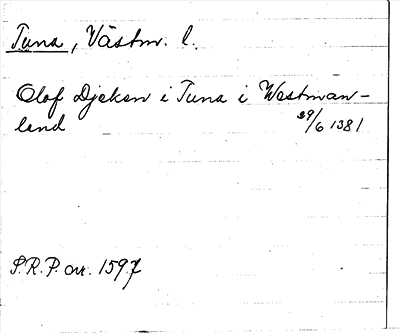 Tuna, Västm. l.
Olof Djeken i Tuna i Westman-
land 29/6 1381
S.R.P. or. 1597